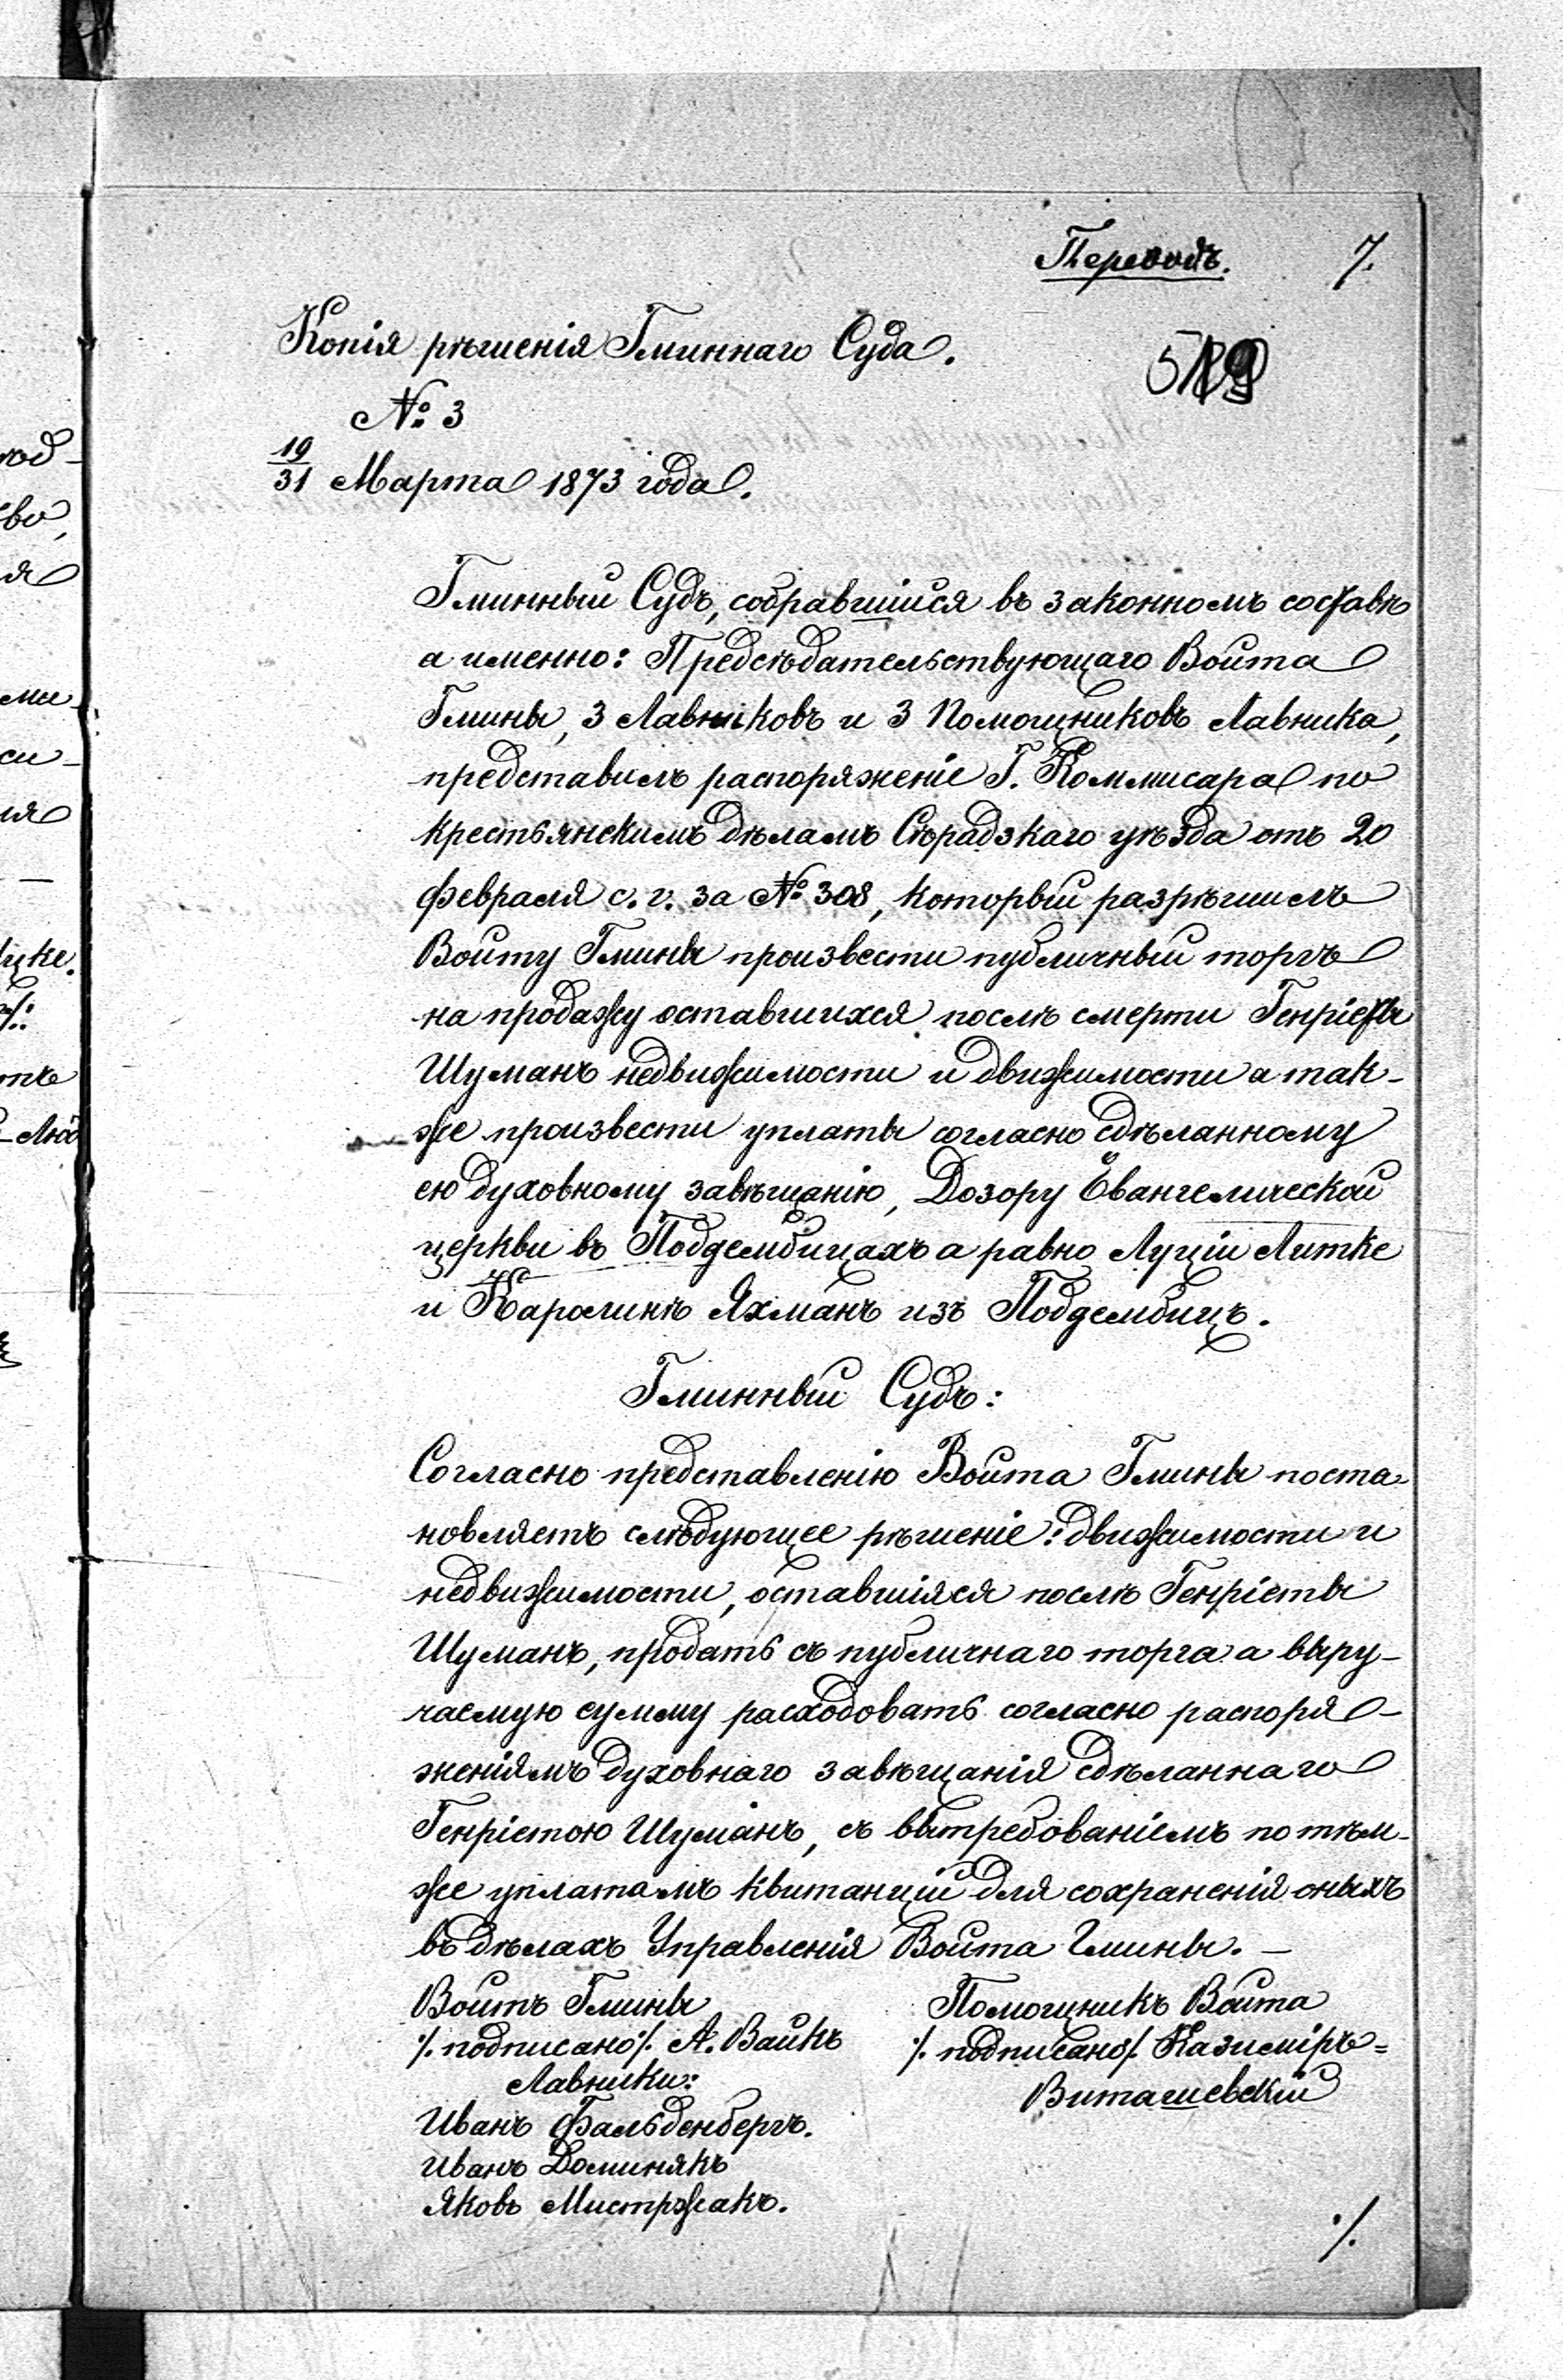 Переводъ. 7.
Копія рѣшенія Гминнаго Суда.
№ 3
19/31 Марта 1873 года.
Гминный Судъ, собравшійся въ законномъ составѣ
а именно: Предсѣдательствующаго Войта
Гмины, 3 Лавниковъ и 3 Помощниковъ Лавника,
представилъ распоряженіе Г. Коммисара по
крестьянскимъ дѣламъ Сѣрадзкаго уѣзда отъ 20
февраля с. г. за № 308, который разрѣшилъ
Войту Гмины произвести публичный торгъ
на продажу оставшихся послѣ смерти Генріеты
Шуманъ недвижимости и движимости а так-
же произвести уплаты согласно сдѣланному
ею духовному завѣщанію, Дозору Евангелической
церкви въ Поддембицахъ а равно Луціи Литке
и Каролинѣ Яхманъ изъ Поддембицъ.
Гминный Судъ:
Согласно представленію Войта Гмины поста-
новляетъ слѣдующее рѣшеніе: движимости и
недвижимости, оставшіяся послѣ Генріеты
Шуманъ, продать съ публичнаго торга а выру-
чаемую сумму расходовать согласно распоря-
женіямъ духовнаго завѣщанія сдѣланнаго
Генріетою Шуманъ, съ вытребованіемъ по тѣм-
же уплатамъ квитанцій для сохраненія оныхъ
въ дѣлахъ Управленія Войта Гмины. —
Войтъ Гмины Помощникъ Войта
/. подписано /. А. Вайкъ /. подписано /. Казиміръ =
Лавники: Виташевскій
Иванъ Фальденбергъ.
Иванъ Доминякъ
Яковъ Мистржакъ.
/.